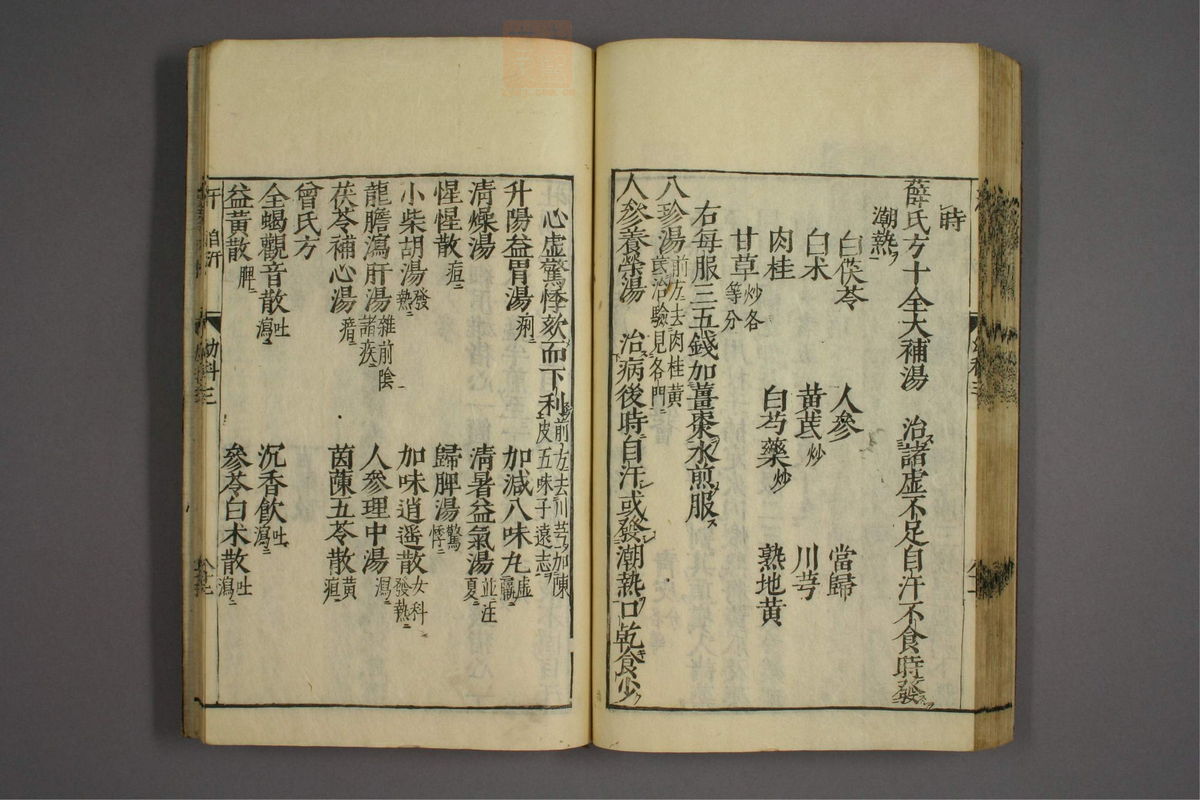 時
薛氏方十全大補湯　治諸虛不足自汗不食時發
潮熱
白茯苓　人參　當歸
白朮　黃芪炒　川芎
肉桂　白芍藥炒　熟地黃
甘草炒各等分
右每服三五錢加薑棗水煎服
八珍湯前方去肉桂黃芪治驗見各門
人參養榮湯　治病後時自汗或發潮熱口乾食少
心虛驚悸欬而下利前方去川芎加陳皮五味子遠志
升陽益胃湯痢　加減八味丸虛羸
清燥湯　清暑益氣湯並注夏
惺惺散疸　歸脾湯驚悸
小柴胡湯發熱　加味逍遙散女科發熱
龍膽瀉肝湯雜前陰諸疾　人參理中湯瀉
茯苓補心湯　茵蔯五苓散黃疸
曾氏方
全蝎觀音散吐瀉　沉香飲吐瀉
益黃散脾　參苓白朮散吐瀉
汗　自汗　幼科三